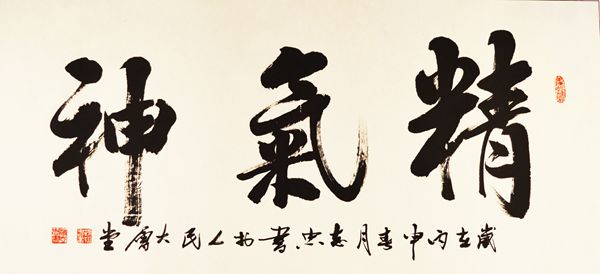 精氣神
歲在丙申春月志忠書於人民大會堂